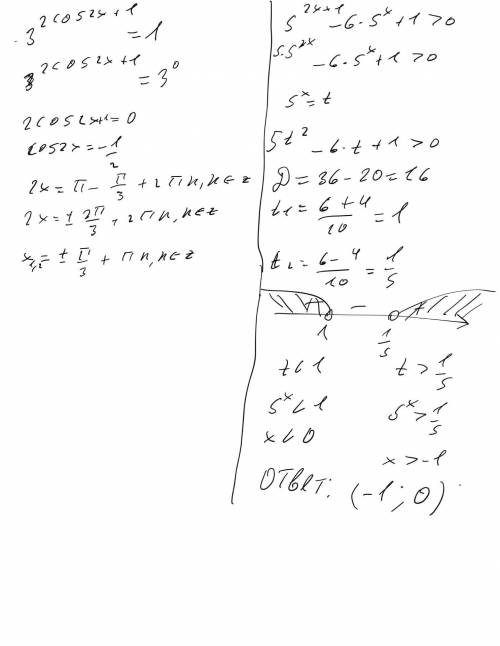 3^{2cos2x+1} = 1
3^{2cos2x+1} = 3^0
2cos2x+1=0
cos2x=-1/2
2x = π - π/3 + 2πn, n∈z
2x = ± 2π/3 + 2πn, n∈z
x_{1,2} = ± π/3 + πn, n∈z
5^{2x+1} - 6·5^x + 1 > 0
5·5^{2x} - 6·5^x + 1 > 0
5^x = t
5t^2 - 6·t + 1 > 0
D = 36 - 20 = 16
t1 = (6+4)/10 = 1
t2 = (6-4)/10 = 1/5
+ - +
1 1/5
t < 1 t > 1/5
5^x < 1 5^x > 1/5
x < 0 x > -1
Ответ: (-1; 0)